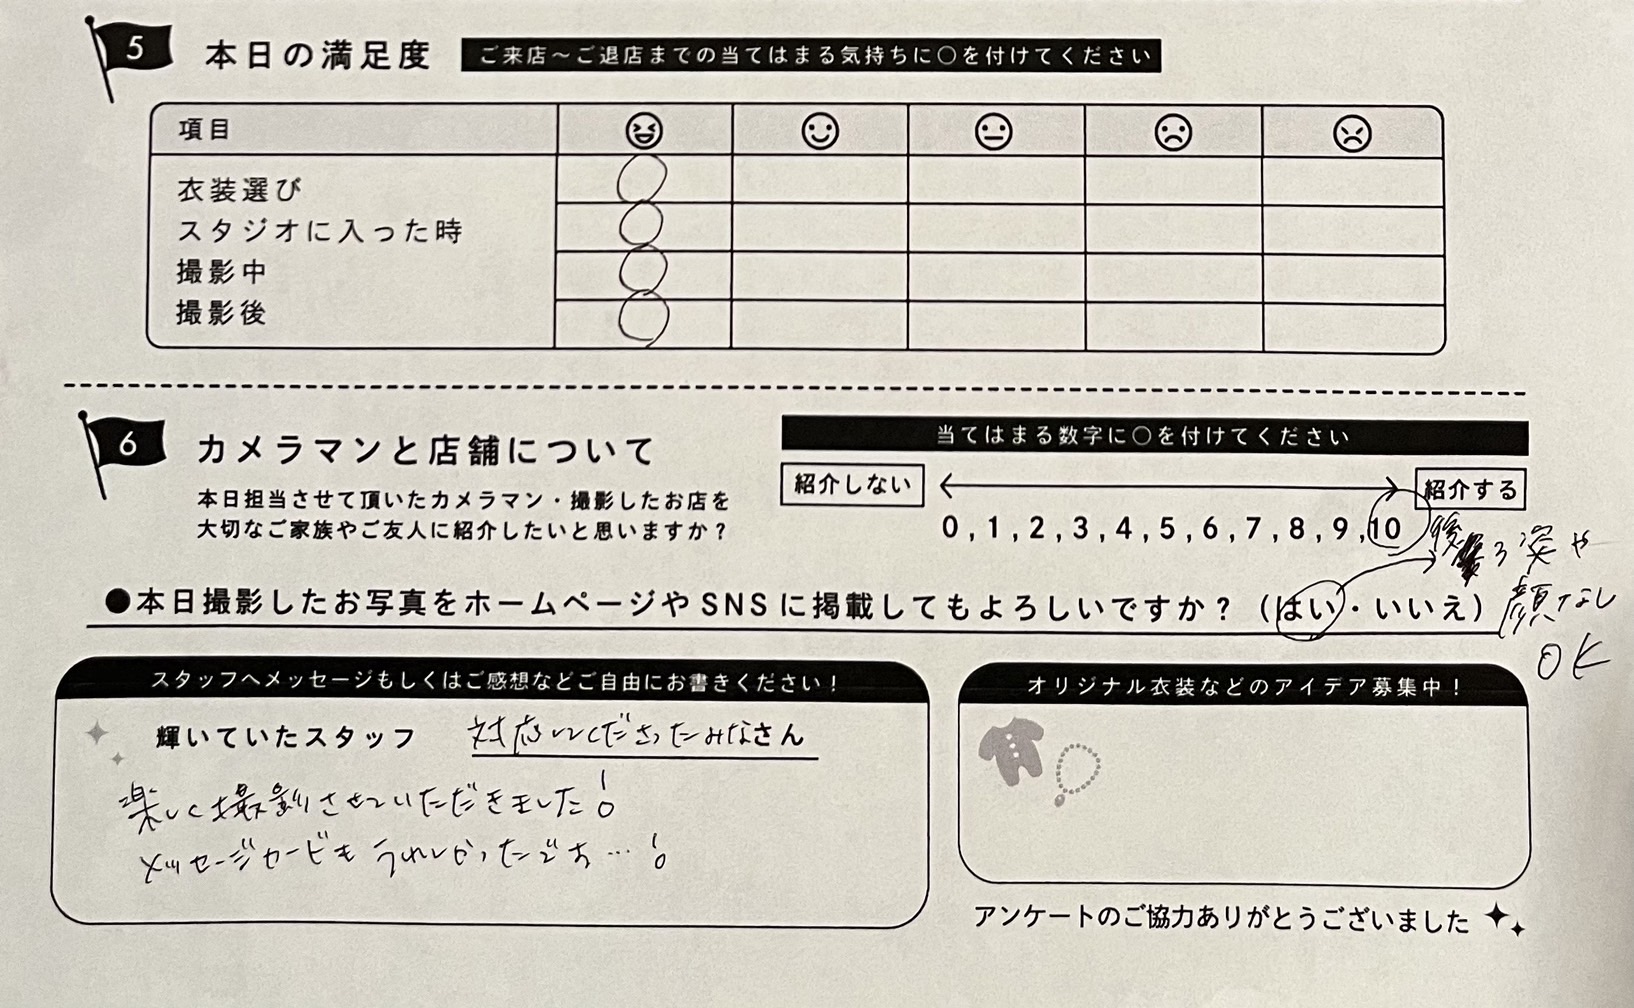 5 本日の満足度 ご来店〜ご退店までの当てはまる気持ちに○を付けてください
項目
衣装選び
スタジオに入った時
撮影中
撮影後
6 カメラマンと店舗について
本日担当させて頂いたカメラマン・撮影したお店を
大切なご家族やご友人に紹介したいと思いますか？
当てはまる数字に○を付けてください
紹介しない 紹介する
0,1,2,3,4,5,6,7,8,9,10
●本日撮影したお写真をホームページやSNSに掲載してもよろしいですか？（はい・いいえ）
後ろ姿や
顔なし
OK
スタッフへメッセージもしくはご感想などご自由にお書きください！
輝いていたスタッフ 対応してくださったみなさん
楽しく撮影させていただきました！
メッセージカードもうれしかったです…！
オリジナル衣装などのアイデア募集中！
アンケートのご協力ありがとうございました